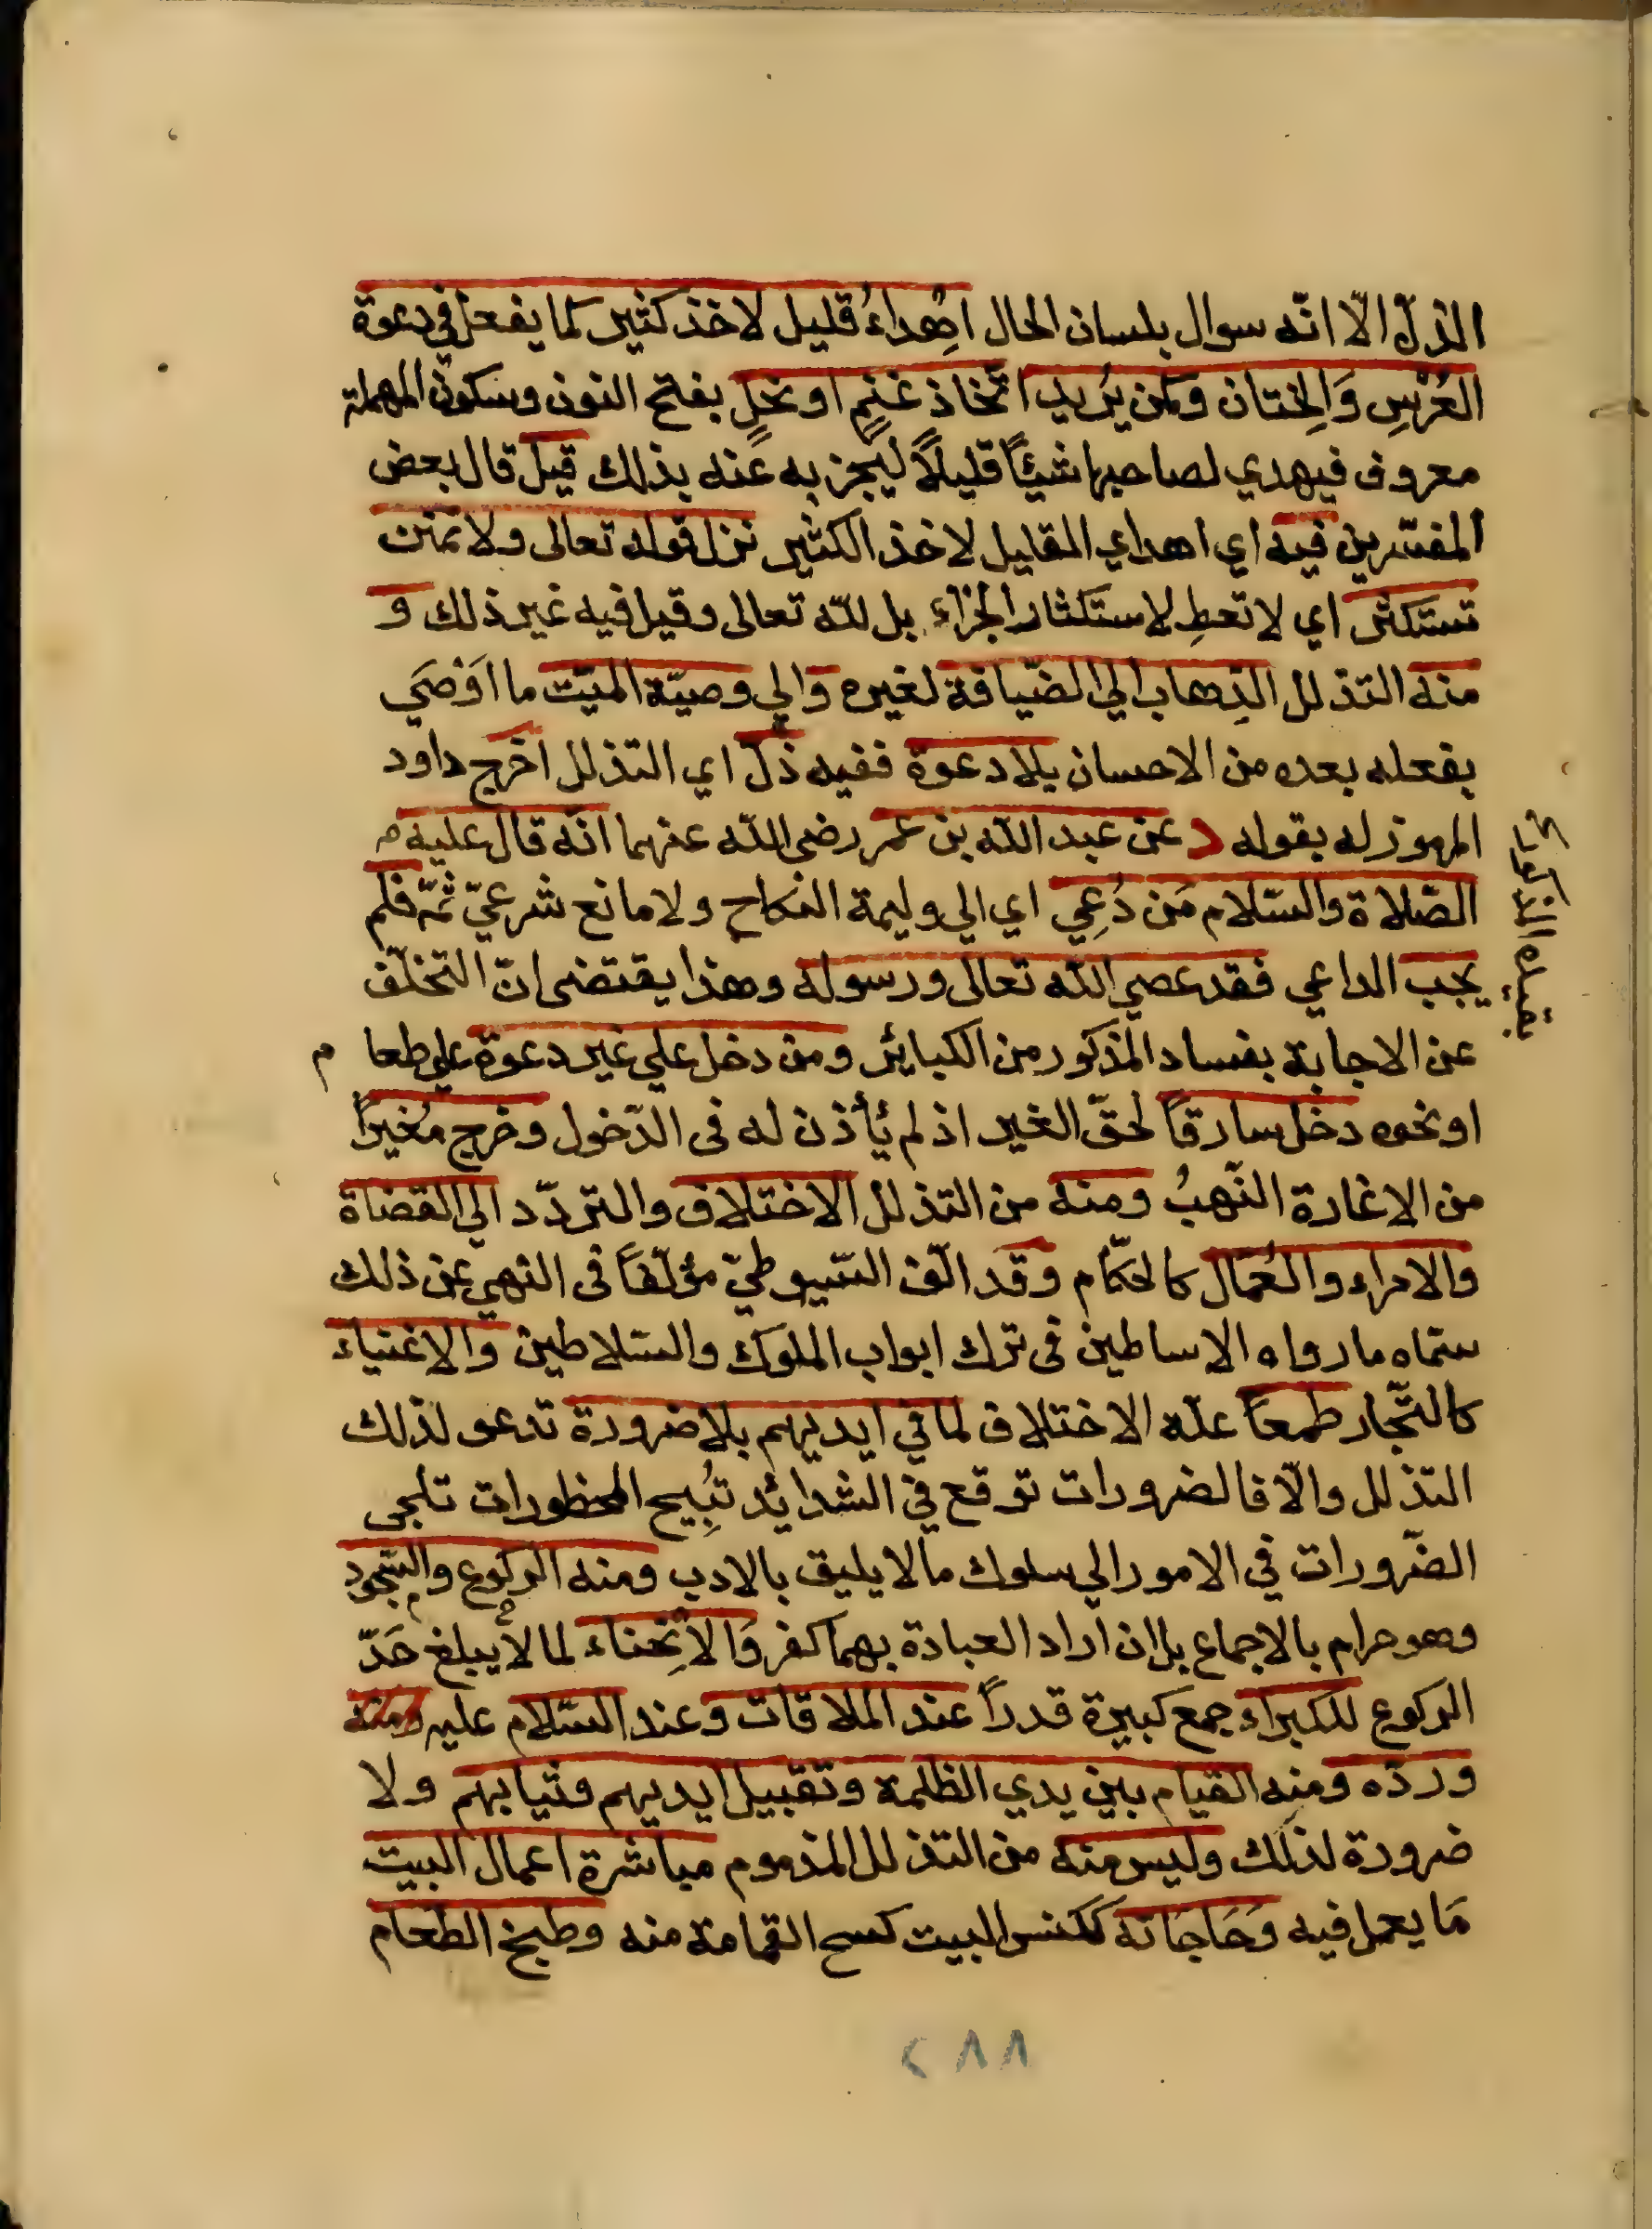 الذلّ الّا انّه سوال بلسان الحال اِهداءُ قليل لاخذ كثير كما يفعل في دعوة
العُرْسِ وَالخِتان وكمن يُريد اتّخاذ غنمٍ او نحلٍ بفتح النون وسكون المهملة
معروف فيهدي لصاحبها شيئًا قليلًا ليجز به عنه بذلك قيل قال بعض
المفسّرين فيه اي اهداي القليل لاخذ الكثير نزل قوله تعالى ولا تمنن
تستكثر اي لا تعطِ لاستكثار الجزاء بل للّه تعالى وقيل فيه غير ذلك و
منه التذلل الذهاب الي الضّيافة لغيره والي وصيّة الميّت ما اَوْصَي
بفعله بعده من الاحسان بلا دعوة ففيه ذلّ اي التذلل اخرج داود
المهوز له بقوله د عن عبد اللّه بن عمر رضى اللّه عنهما انّه قال عليه م
الصّلاة والسّلام مَن دُعِي اي الي وليمة النكاح ولا مانع شرعيّ ثمّ فلم
يجب الداعي فقد عصي اللّه تعالى ورسوله وهذا يقتضى انّ التخلّف
عن الاجابة بفساد المذكور من الكبائر ومن دخل علي غير دعوة علي طعا م
او نحوه دخل سارقاً لحقّ الغير اذ لم يأذن له فى الدّخول وخرج مُغيراً
من الاغارة النّهبُ ومنه من التذلل الاختلاف والتردّد الي القضاة
والامراء والعُمّال كالحكّام وقد الّف السّيوطيّ مؤلّفاً فى النهي عن ذلك
سمّاه ما رواه الاساطين فى ترك ابواب الملوك والسّلاطين والاغنياء
كالتّجار طمعاً علّة الاختلاف لما في ايديهم بلا ضرورة تدعو لذلك
التذلل والّا فالضرورات توقع في الشدائد تُبِيح المحظورات تلجى
الضّرورات في الامور الي سلوك ما لا يليق بالادب ومنه الركوع والسّجود
وهو حرام بالاجماع بل ان اراد العبادة بهما كفر وَالاِنْحِناء لما لا يبلغ حَدّ
الركوع للكبراء جمع كبيرة قدراً عند الملاقات وعند السّلام عليه ومنه
وردّه ومنه القيام بين يدي الظلمة وتقبيل ايديهم وثيابهم ولا
ضرورة لذلك وليس منه من التذلل المذموم مباشرة اعمال البيت
مَا يعمل فيه وَحَاجَاته ككنس البيت كسح القمامة منه وطبخ الطعام
٢٨٨